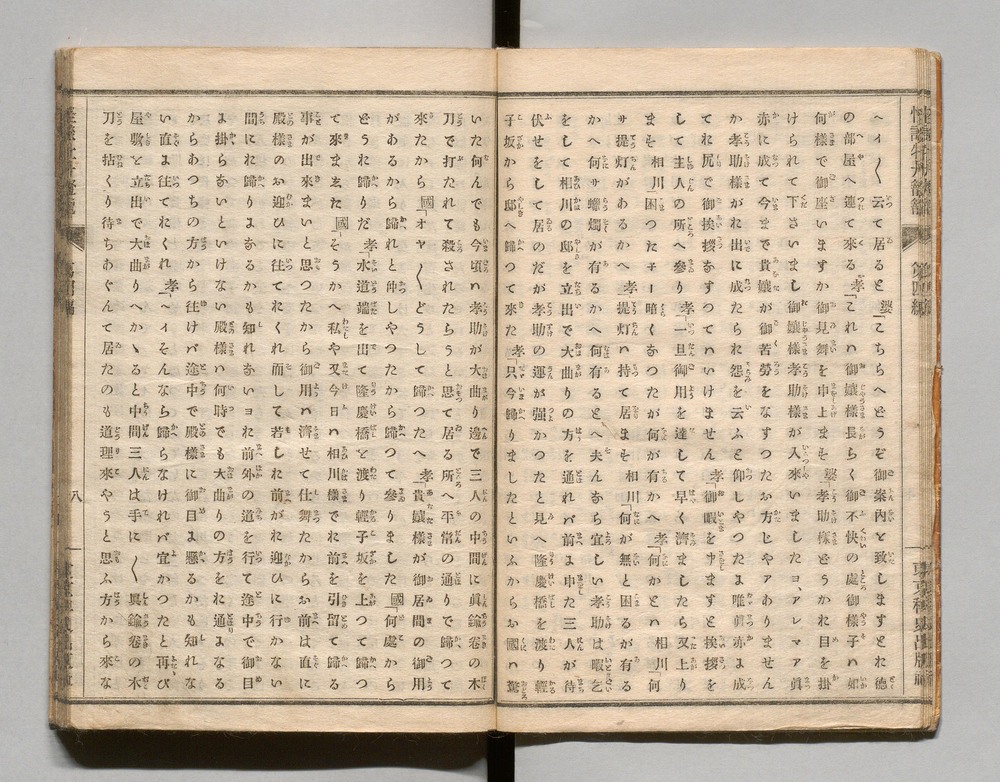 ヘイ〱云て居ると婆「こちらへどうぞ御案内を致しますとお德
の部屋へ連て來る孝「これハ御孃樣長らく御不快の處御樣子ハ如
何樣で御座いますか御見舞を申上ます婆「孝助樣どうかお目を掛
けられて下さいまし御孃樣孝助樣が入來いましたヨ、アレマア眞
赤に成て今まで貴孃が御苦勞をなすつたお方じやアありません
か孝助樣がお出に成たらお怨を云ふと仰しやつたよ唯眞赤よ成
てお尻で御挨拶なすつてハいけません孝「御暇を申ますと挨拶を
して主人の所へ參り孝「一旦御用を達して早く濟ましたら又上り
ます相川「困つたチー暗くなつたが何が有かヘ孝「何かとハ相川「何
サ提灯があるかヘ孝「提灯ハ持て居ます相川「何が無と困るが有る
かヘ何サ蠟燭が有るかヘ何有るとヘ夫んなら宜しい孝助は暇乞
をして相川の邸を立出で大曲りの方を通れバ前よ申た三人が待
伏せをして居のだが孝助の運が强かつたと見ヘ隆慶橋を渡り輕
子坂から邸へ歸つて來た孝「只今歸りましたといふからお國ハ驚
いた何んでも今頃ハ孝助が大曲り邊で三人の中間に眞鍮卷の木
刀で打れて殺されたらうと思て居る所へ平常の通りで歸つて
來たから國「オヤ〱どうして歸つたヘ孝「貴孃樣が御居間の御用
があるから歸れと仰しやつたから歸つて參りました國「何處から
どうお歸りだ孝「水道端を出て隆慶橋を渡り輕子坂を上つて歸つ
て來ました國「そうかヘ私や又今日ハ相川樣でお前を引留て歸る
事が出來まいと思つたから御用ハ濟せて仕舞たからお前は直に
殿樣のお迎ひに往てお呉れ而して若しお前がお迎ひに行かない
間にお歸りよなるかも知れないヨお前外の道を行て途中で御目
よ掛らないといけない殿樣ハ何時でも大曲りの方をお通よなる
からあつちの方から往けバ途中で殿樣に御目よ懸るかも知れな
い直よ往てお呉れ孝「ヘイそんなら歸らなけれバ宜かつたと再び
屋敷を立出で大曲りへかゝると中間三人は手に〱眞鍮卷の木
刀を拈くり待ちあぐんて居たのも道理來やうと思ふ方から來な
八